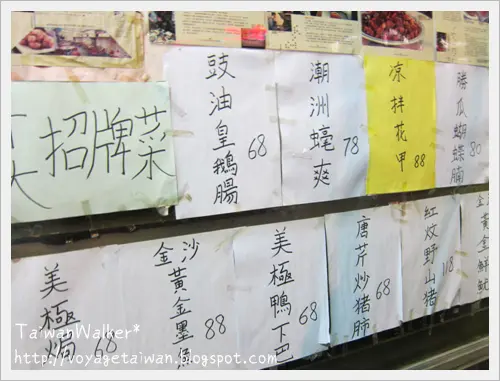 招牌菜
豉油皇鵝腸 68
潮洲蠔爽 78
凉拌花甲 88
勝瓜蝴蝶腩 80
美極焗 68
金沙黃金墨魚 88
美極鴨下巴 68
唐芹炒猪肺 68
紅炆野山猪 118
TaiwanWalker*
http://voyagetaiwan.blogspot.com